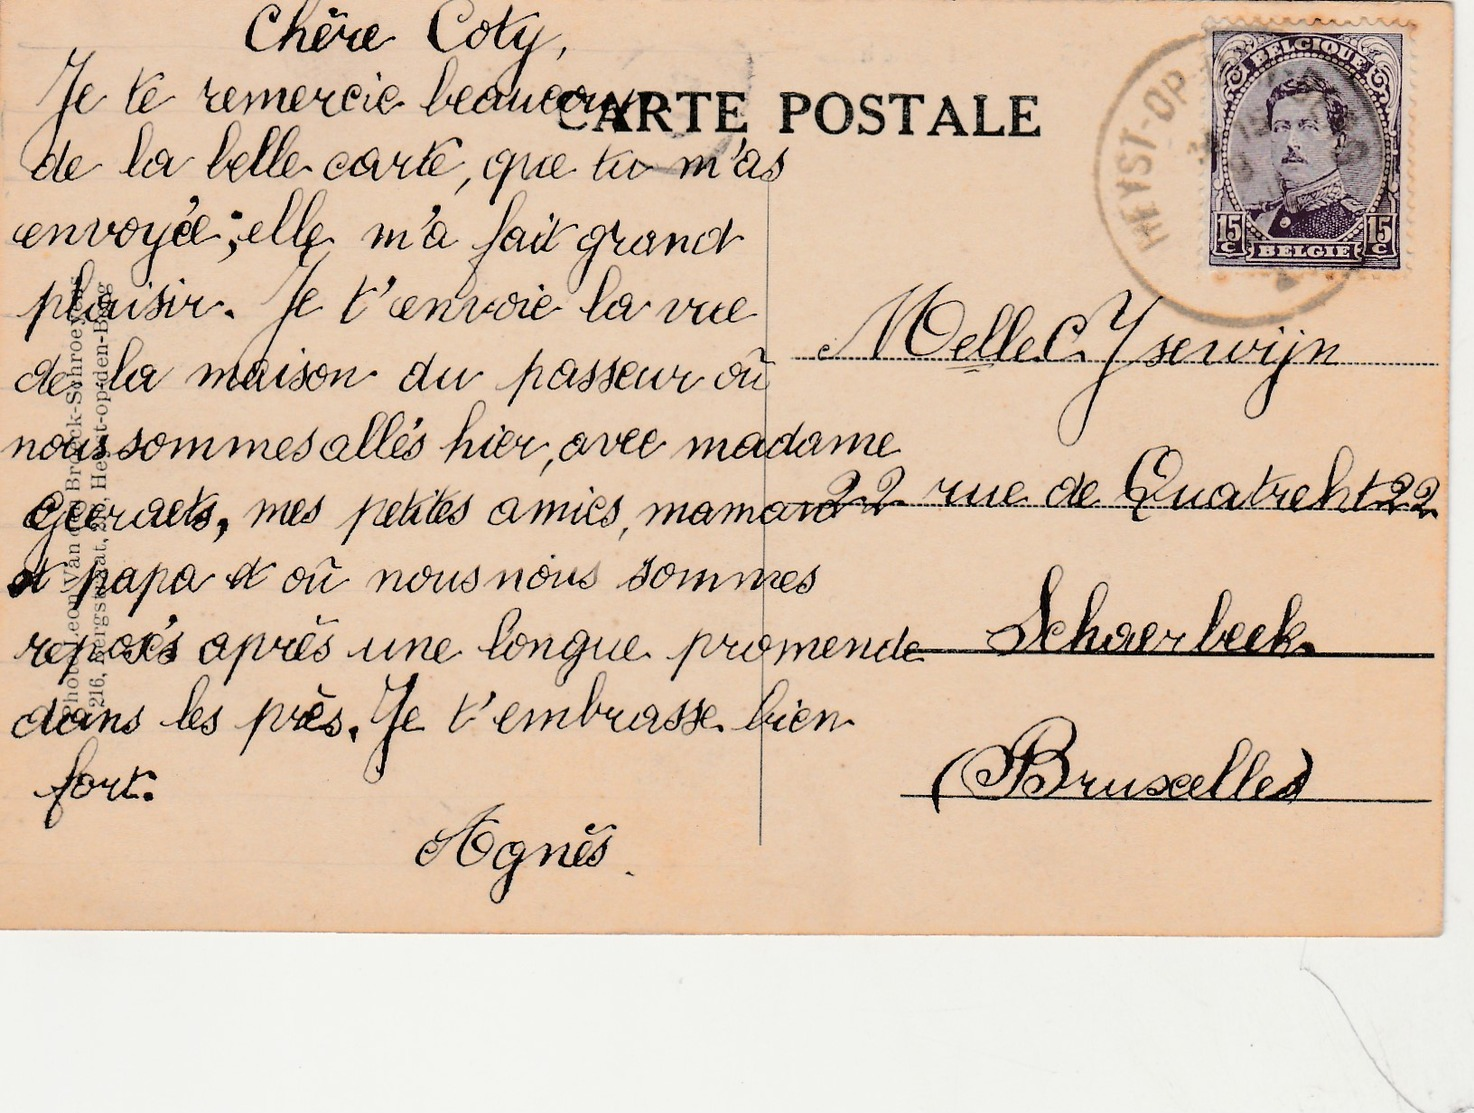 Chère Coty,
Je te remercie beaucoup
CARTE POSTALE
de la belle carte, que tu m'as
envoyée; elle m'a fait grand
plaisir. Je t'envoie la vue
de la maison du passeur où
nous sommes allés hier, avec madame
Geeraets, mes petites amies, maman
et papa et où nous nous sommes
reposés après une longue promende
dans les près. Je t'embrasse bien
fort.
Agnès.
BELGIQUE
15 C 15 C
BELGIË
HEYST-OP
Melle C. Yserwijn
22 rue de Quatreht 22
Schaerbeek.
(Bruxelles)
Photo Leon Van den Broeck-Schroeyens
216, Bergstraat, 216, Heist-op-den-Berg